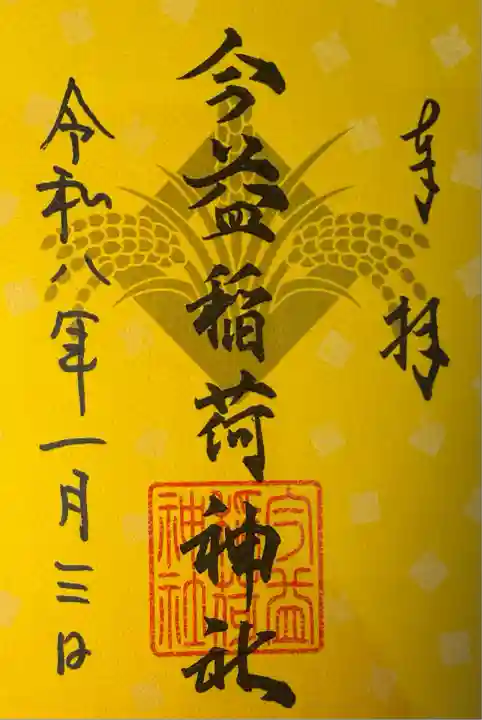 奉拝
今益稲荷神社
令和八年一月三日
今益
稲荷
神社